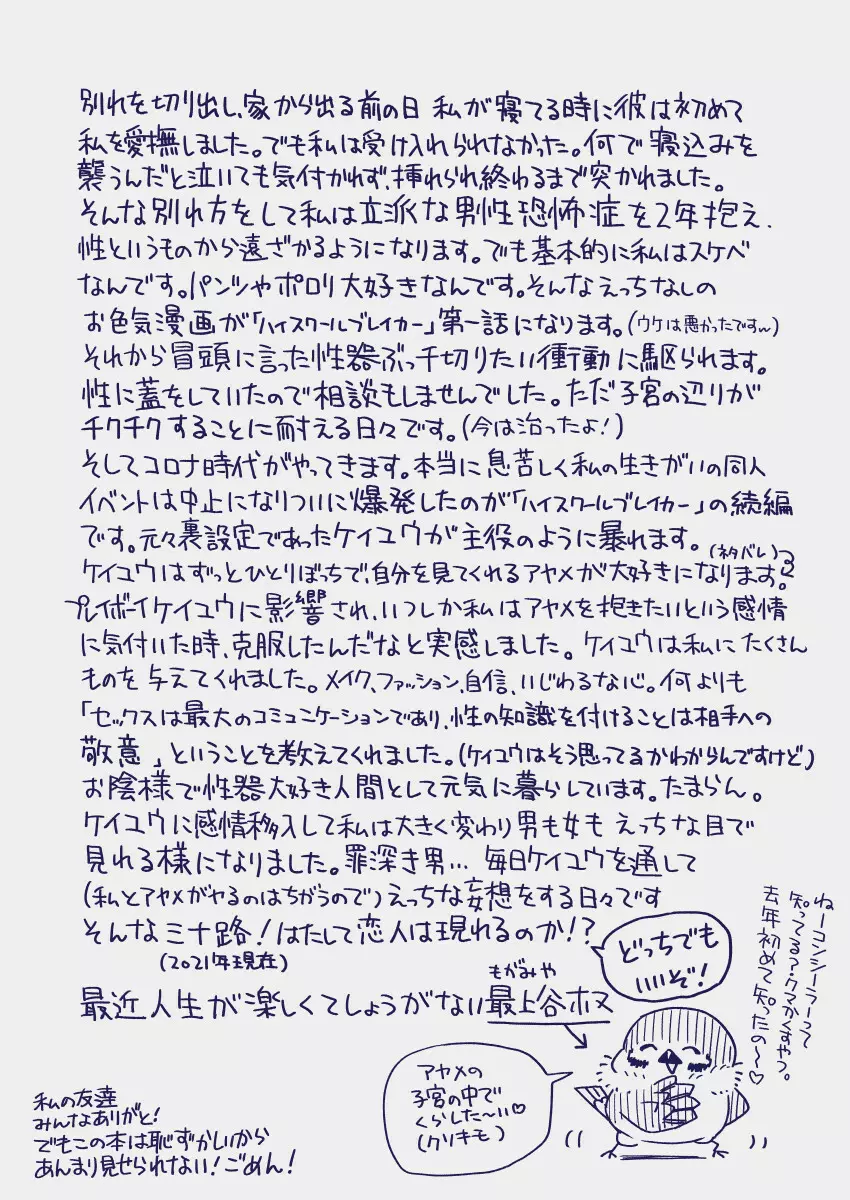 別れを切り出し、家から出る前の日 私が寝てる時に彼は初めて
私を愛撫しました。でも私は受け入れられなかった。何で寝込みを
襲うんだと泣いても気付かれず、挿れられ終わるまで突かれました。
そんな別れ方をして私は立派な男性恐怖症を2年抱え、
性というものから遠ざかるようになります。でも基本的に私はスケベ
なんです。パンツやポロリ大好きなんです。そんなえっちなしの
お色気漫画が「ハイスクールブレイカー」第一話になります。(ウケは悪かったですw)
それから冒頭に言った性器ぶっ千切りたい衝動に駆られます。
性に蓋をしていたので相談もしませんでした。ただ子宮の辺りが
チクチクすることに耐える日々です。(今は治ったよ!)
そしてコロナ時代がやってきます。本当に息苦しく私の生きがいの同人
イベントは中止になりついに爆発したのが「ハイスクールブレイカー」の続編
です。元々裏設定であったケイユウが主役のように暴れます。
(ネタバレ)
ケイユウはずっとひとりぼっちで、自分を見てくれるアヤメが大好きになります。
プレイボーイケイユウに影響され、いつしか私はアヤメを抱きたいという感情
に気付いた時、克服したんだなと実感しました。ケイユウは私にたくさん
ものを与えてくれました。メイク、ファッション、自信、いじわるな心。何よりも
「セックスは最大のコミュニケーションであり、性の知識を付けることは相手への
敬意」ということを教えてくれました。(ケイユウはそう思ってるかわからんですけど)
お陰様で性器大好き人間として元気に暮らしています。たまらん。
ケイユウに感情移入して私は大きく変わり男も女もえっちな目で
見れる様になりました。罪深き男… 毎日ケイユウを通して
(私とアヤメがヤるのはちがうので)えっちな妄想をする日々です
そんなミナ路!はたして恋人は現れるのか!?
(2021年現在)
どっちでも
いいぞ!
もがみや
最近人生が楽しくてしょうがない最上谷ホマ
ねーコンシーラーって
知ってる?クマかくすやつ。
去年初めて知ったの〜♡
アヤメの
子宮の中で
くらした〜い♡
(クソキモ)
私の友達
みんなありがと!
でもこの本は恥ずかしいから
あんまり見せられない!ごめん!